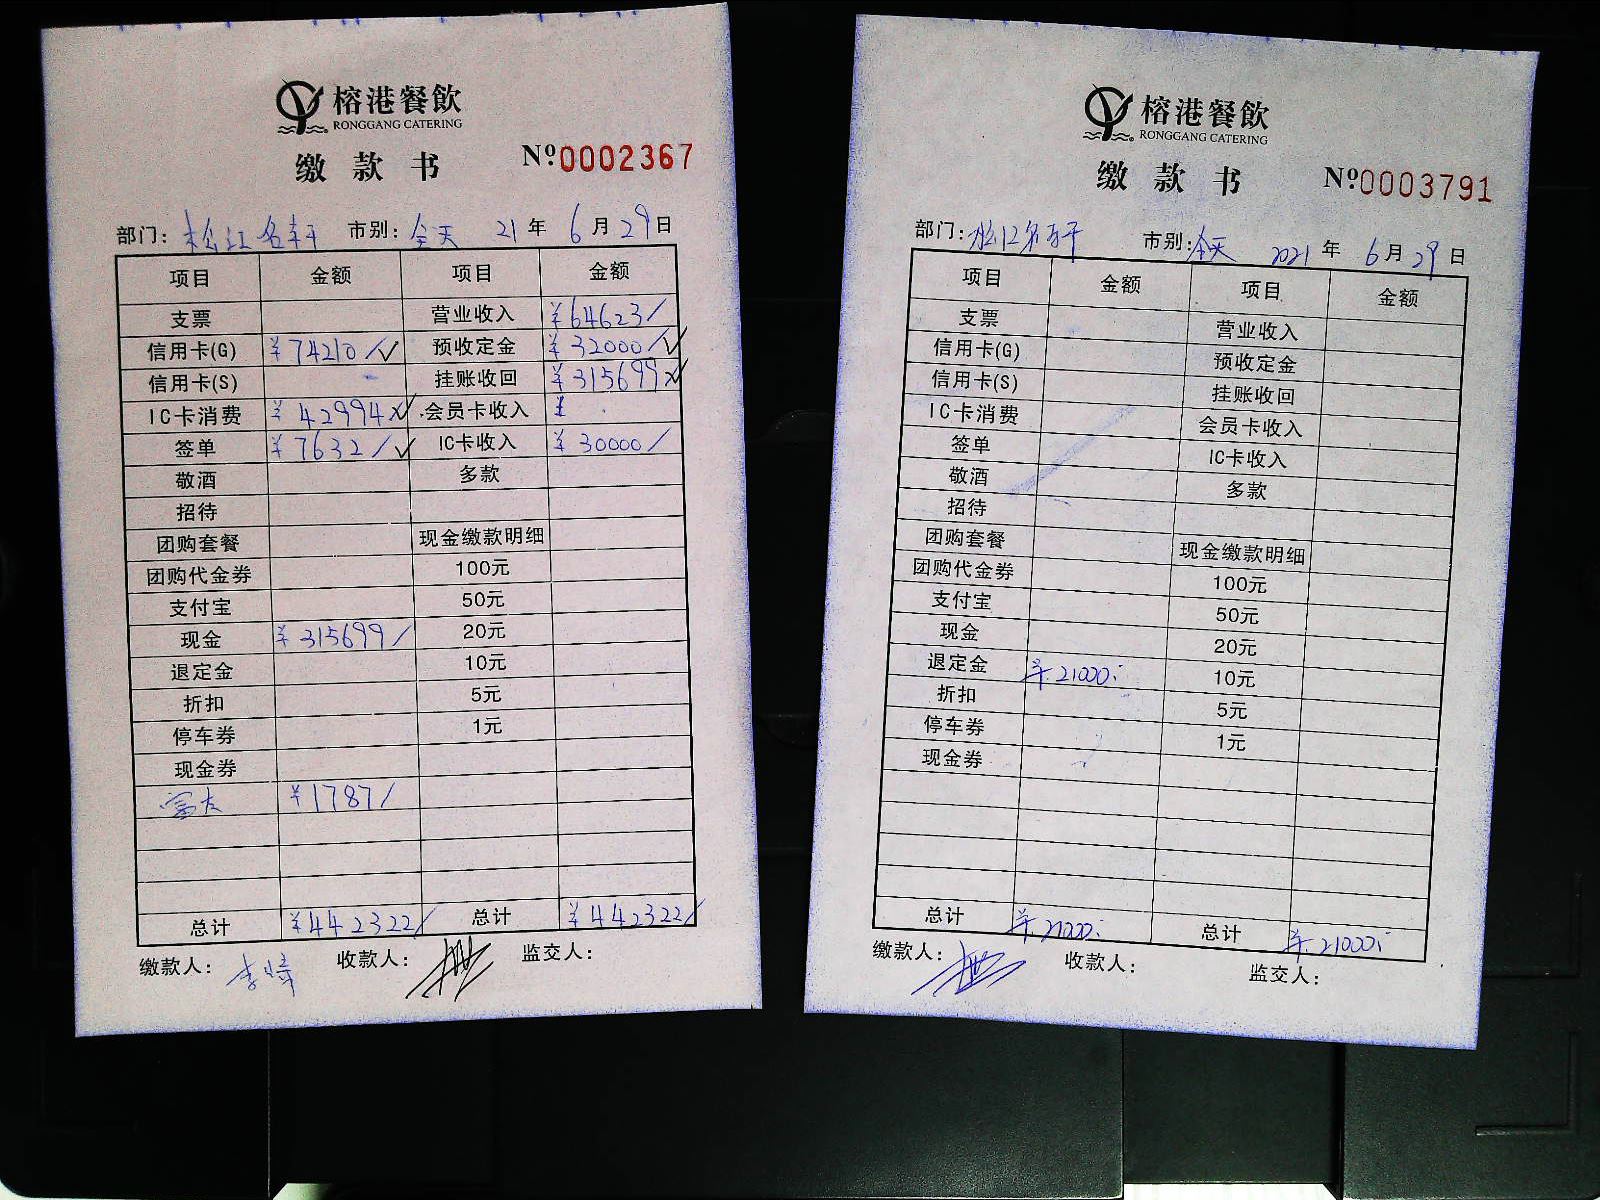 榕港餐飲
RONGGANG CATERING
缴款书 Nº0002367
部门: 松江名轩 市别: 全天 21年 6月29日
项目 金额 项目 金额
支票 营业收入 ¥64623/
信用卡(G) ¥74210/✓ 预收定金 ¥32000/✓
信用卡(S) 挂账收回 ¥315699
IC卡消费 ¥42994 会员卡收入 ¥
签单 ¥7632/✓ IC卡收入 ¥30000/
敬酒 多款
招待
团购套餐 现金缴款明细
团购代金券 100元
支付宝 50元
现金 ¥315699/ 20元
退定金 10元
折扣 5元
停车券 1元
现金券
富友 ¥1787/
总计 ¥442322/ 总计 ¥442322/
缴款人: 收款人: 监交人:
榕港餐飲
RONGGANG CATERING
缴款书 Nº0003791
部门: 松江名轩 市别: 全天 2021年 6月29日
项目 金额 项目 金额
支票 营业收入
信用卡(G) 预收定金
信用卡(S) 挂账收回
IC卡消费 会员卡收入
签单 IC卡收入
敬酒 多款
招待
团购套餐 现金缴款明细
团购代金券 100元
支付宝 50元
现金 20元
退定金 ¥21000 10元
折扣 5元
停车券 1元
现金券
总计 ¥21000 总计 ¥21000
缴款人: 收款人: 监交人: